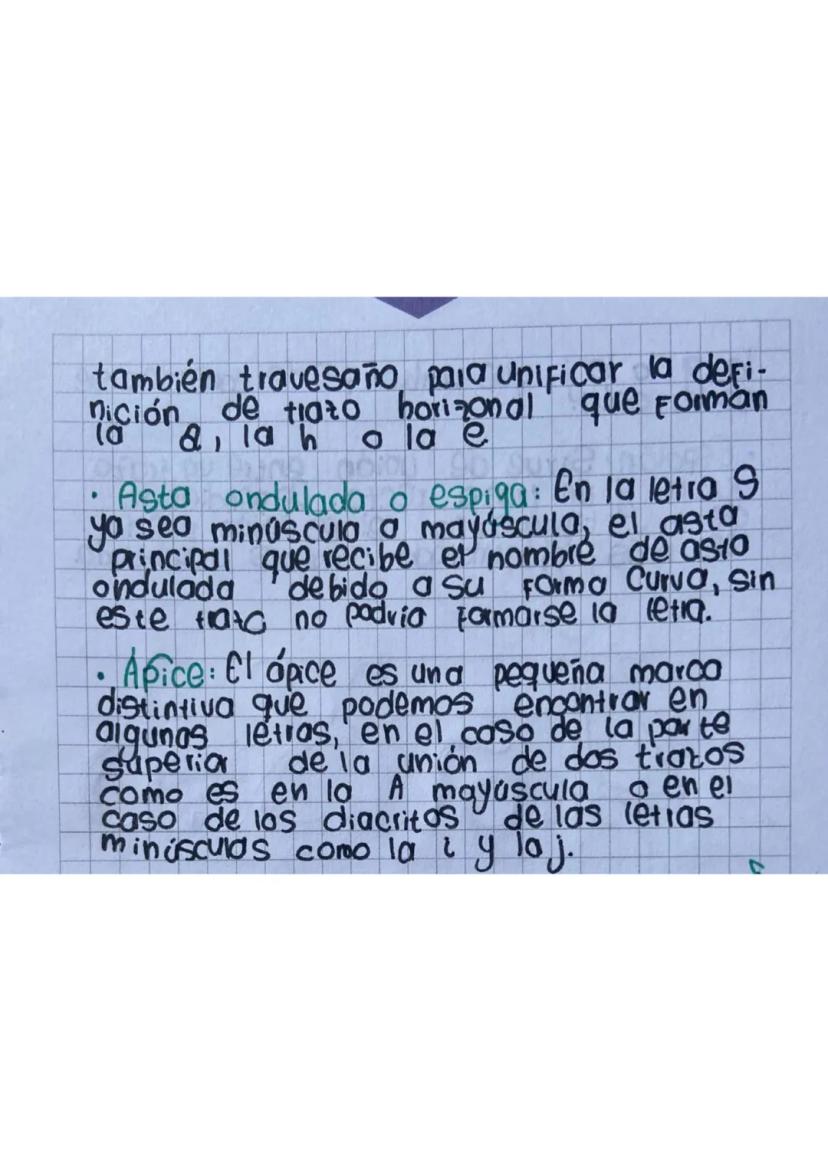 también travesaño para unificar la defi-
nición de trazo horizonal que forman
la a, la h o la e
• Asta ondulada o espiga: En la letra S
ya sea minúscula o mayúscula, el asta
principal que recibe el nombre de asta
ondulada debido a su forma curva, sin
este trazo no podria formarse la letra.
• Ápice: El ápice es una pequeña marca
distintiva que podemos encontrar en
algunas letras, en el caso de la parte
superior de la unión de dos trazos
como es en la A mayúscula o en el
caso de los diacritos de las letras
minúsculas como la i y la j.